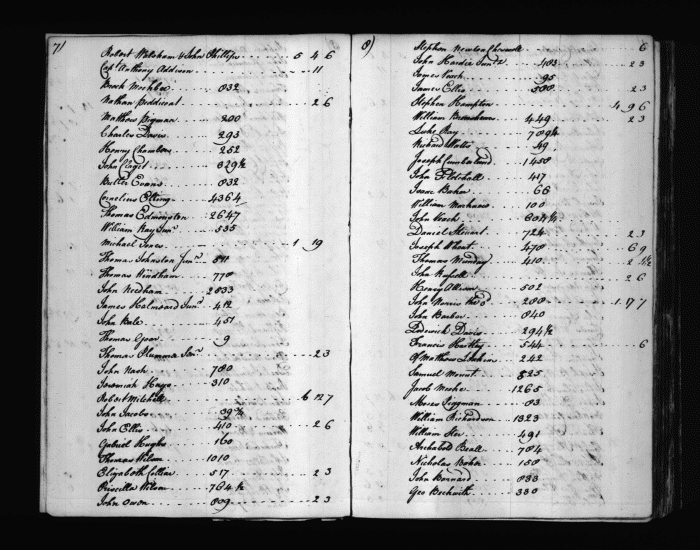 71
Robert Wilsham & John Phillips 5 4 6
Capt Anthony Addison 11
Brock Mockbee 832
Nathan Peddicoat 2 6
Matthew Pigman 200
Charles Davis 293
Henry Chambers 252
John Claget 329½
Butler Evans 832
Cornelius Etting 4364
Thomas Edmonston 2647
William Ray Junr 535
Michael Jones 1 19
Thomas Johnston Junr 811
Thomas Windham 770
John Needham 2833
James Halmeard Junr 412
John Bale 451
Thomas 9
Thomas Plummer Senr 2 3
John Nash 780
Jeremiah Hayes 310
Robert Mitchell 6 12 7
John Jacobs
John Ellis 410 2 6
Gabriel Hughes 160
Thomas Wilson 1010
Elizabeth Collier 517 2 3
Priscilla Wilson 764½
John Owen 809 2 3
8)
Stephen Newton Chiswell 6
John Hardie Junr 403 2 3
James Veach 95
James Ellis 500 2 3
Stephen Hampton 4 9 6
William 449 2 3
Luke Ray 789½
Richard Watts 49
Joseph Cumberland 1450
John Fletchall 417
Isaac Baker 66
William 100
John Veach
Daniel Stewart 724 2 3
Joseph Wheat 470 6 9
Thomas Munday 410 2 4½
John Russell 2 6
Henry Allison 502
John Norris 200 1 7 7
John Barber 840
Lodowick Davis 294½
Francis Hartley 544 6
Of Matthew 242
Samuel Mount 825
Jacob Meeke 1265
Moses 83
William Richardson 1323
William 491
Archabald Beall 704
Nicholas Baker 150
John Barnard 833
Geo Beckwith 330